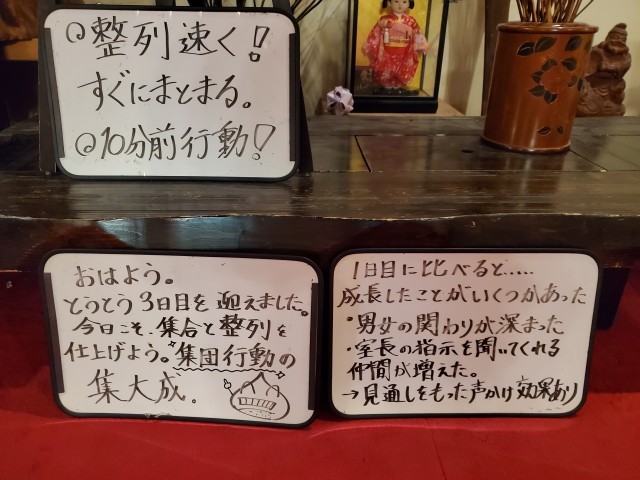 ◎整列速く!
すぐにまとまる。
◎10分前行動!
おはよう。
とうとう3日目を迎えました。
今日こそ、集合と整列を
仕上げよう。集団行動の
集大成。
1日目に比べると.....
成長したことがいくつかあった
・男女の関わりが深まった
・室長の指示を聞いてくれる
仲間が増えた。
→見通しをもった声かけ効果あり